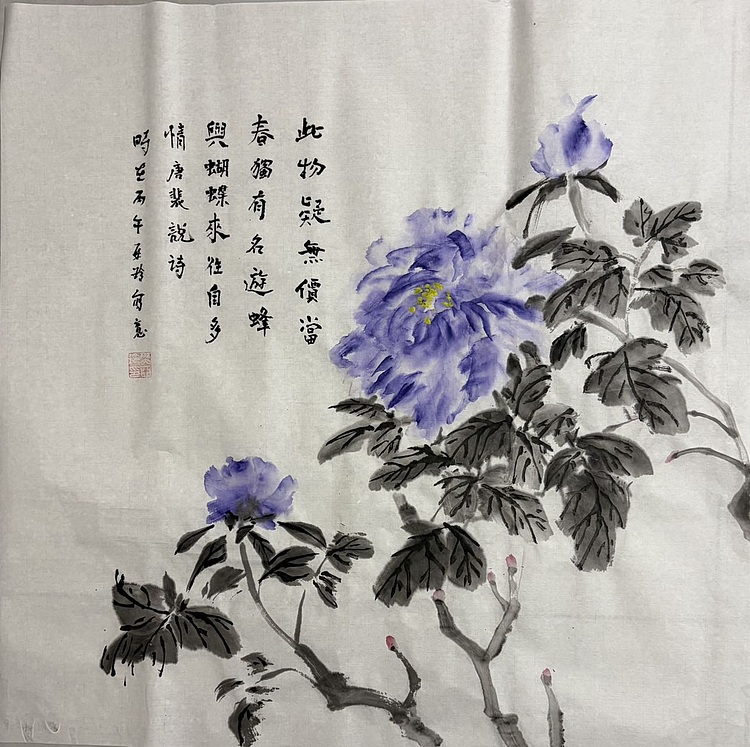 此物疑無價當
春獨有名遊蜂
與蝴蝶來往自多
情唐裴說詩
時在丙午